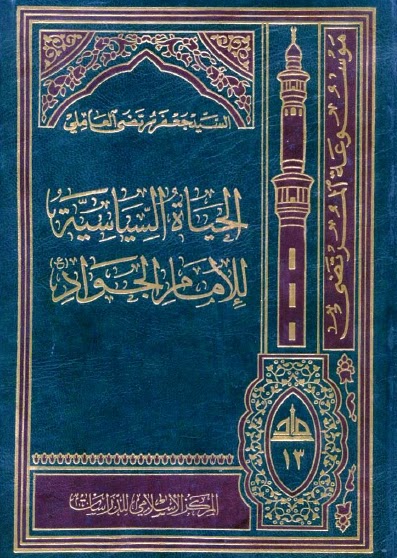 السيد جعفر مرتضى العاملي
الحياة السياسية
للإمام الجواد (ع)
موسوعة المرتضى
١٣
المركز الإسلامي للدراسات